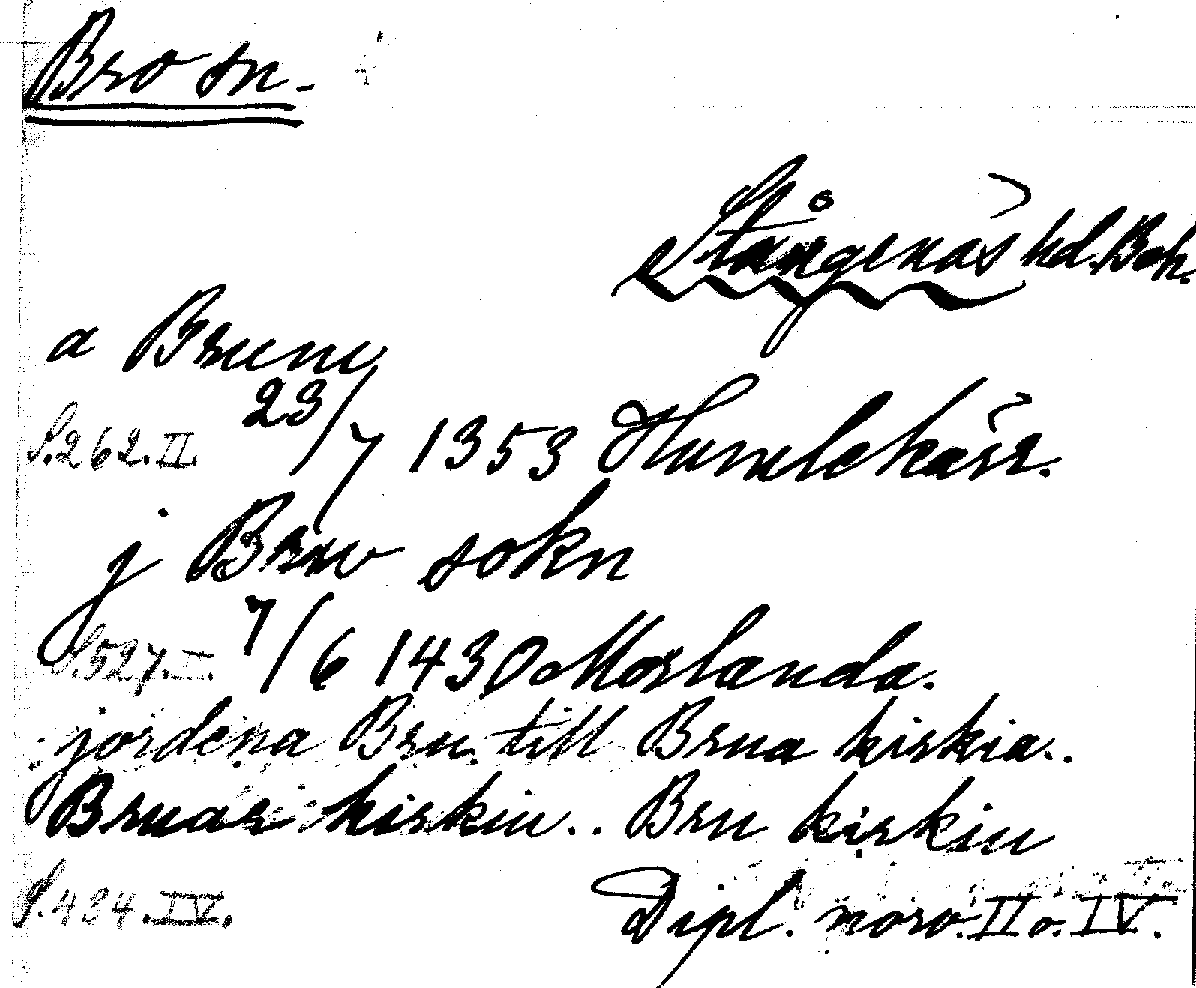 Bro sn.
Stångenäs hd. Boh.
a Bruni
S. 262. II. 23/7 1353 Humlekärr.
j Brw sokn
S. 527. I. 7/6 1430 Morlanda.
jordena Bru. till Brua kirkia..
Bruar kirkiu.. Bru kirkiu
S. 434. IV. Dipl. norv. II o. IV.